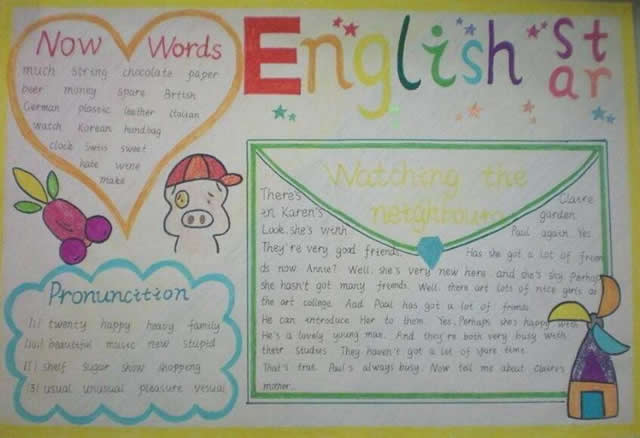 Now Words
much string chocolate paper
beer money spare British
German plastic leather Italian
watch Korean handbag
clock Swiss sweet
hate wine
make
English star
Pronuncition
/i/ twenty happy heavy family
beautiful music new stupid
/ʃ/ shelf sugar show shopping
/ʒ/ usual unusual pleasure
Watching the
neighbours
There's Claire
in Karen's garden.
Look, she's with Paul again. Yes
They're very good friends. Has she got a lot of frien
ds now Annie? Well, she's very new here and she's shy. Perhaps
she hasn't got many friends. Well, there art lots of nice girls at
the art college. And Paul has got a lot of friends
He can introduce Her to them. Yes, Perhaps she's happy with
He's a lovely young man. And they're both very busy with
their studies They haven't got a lot of spare time.
That's true. Paul's always busy. Now tell me about Claire's
mother...